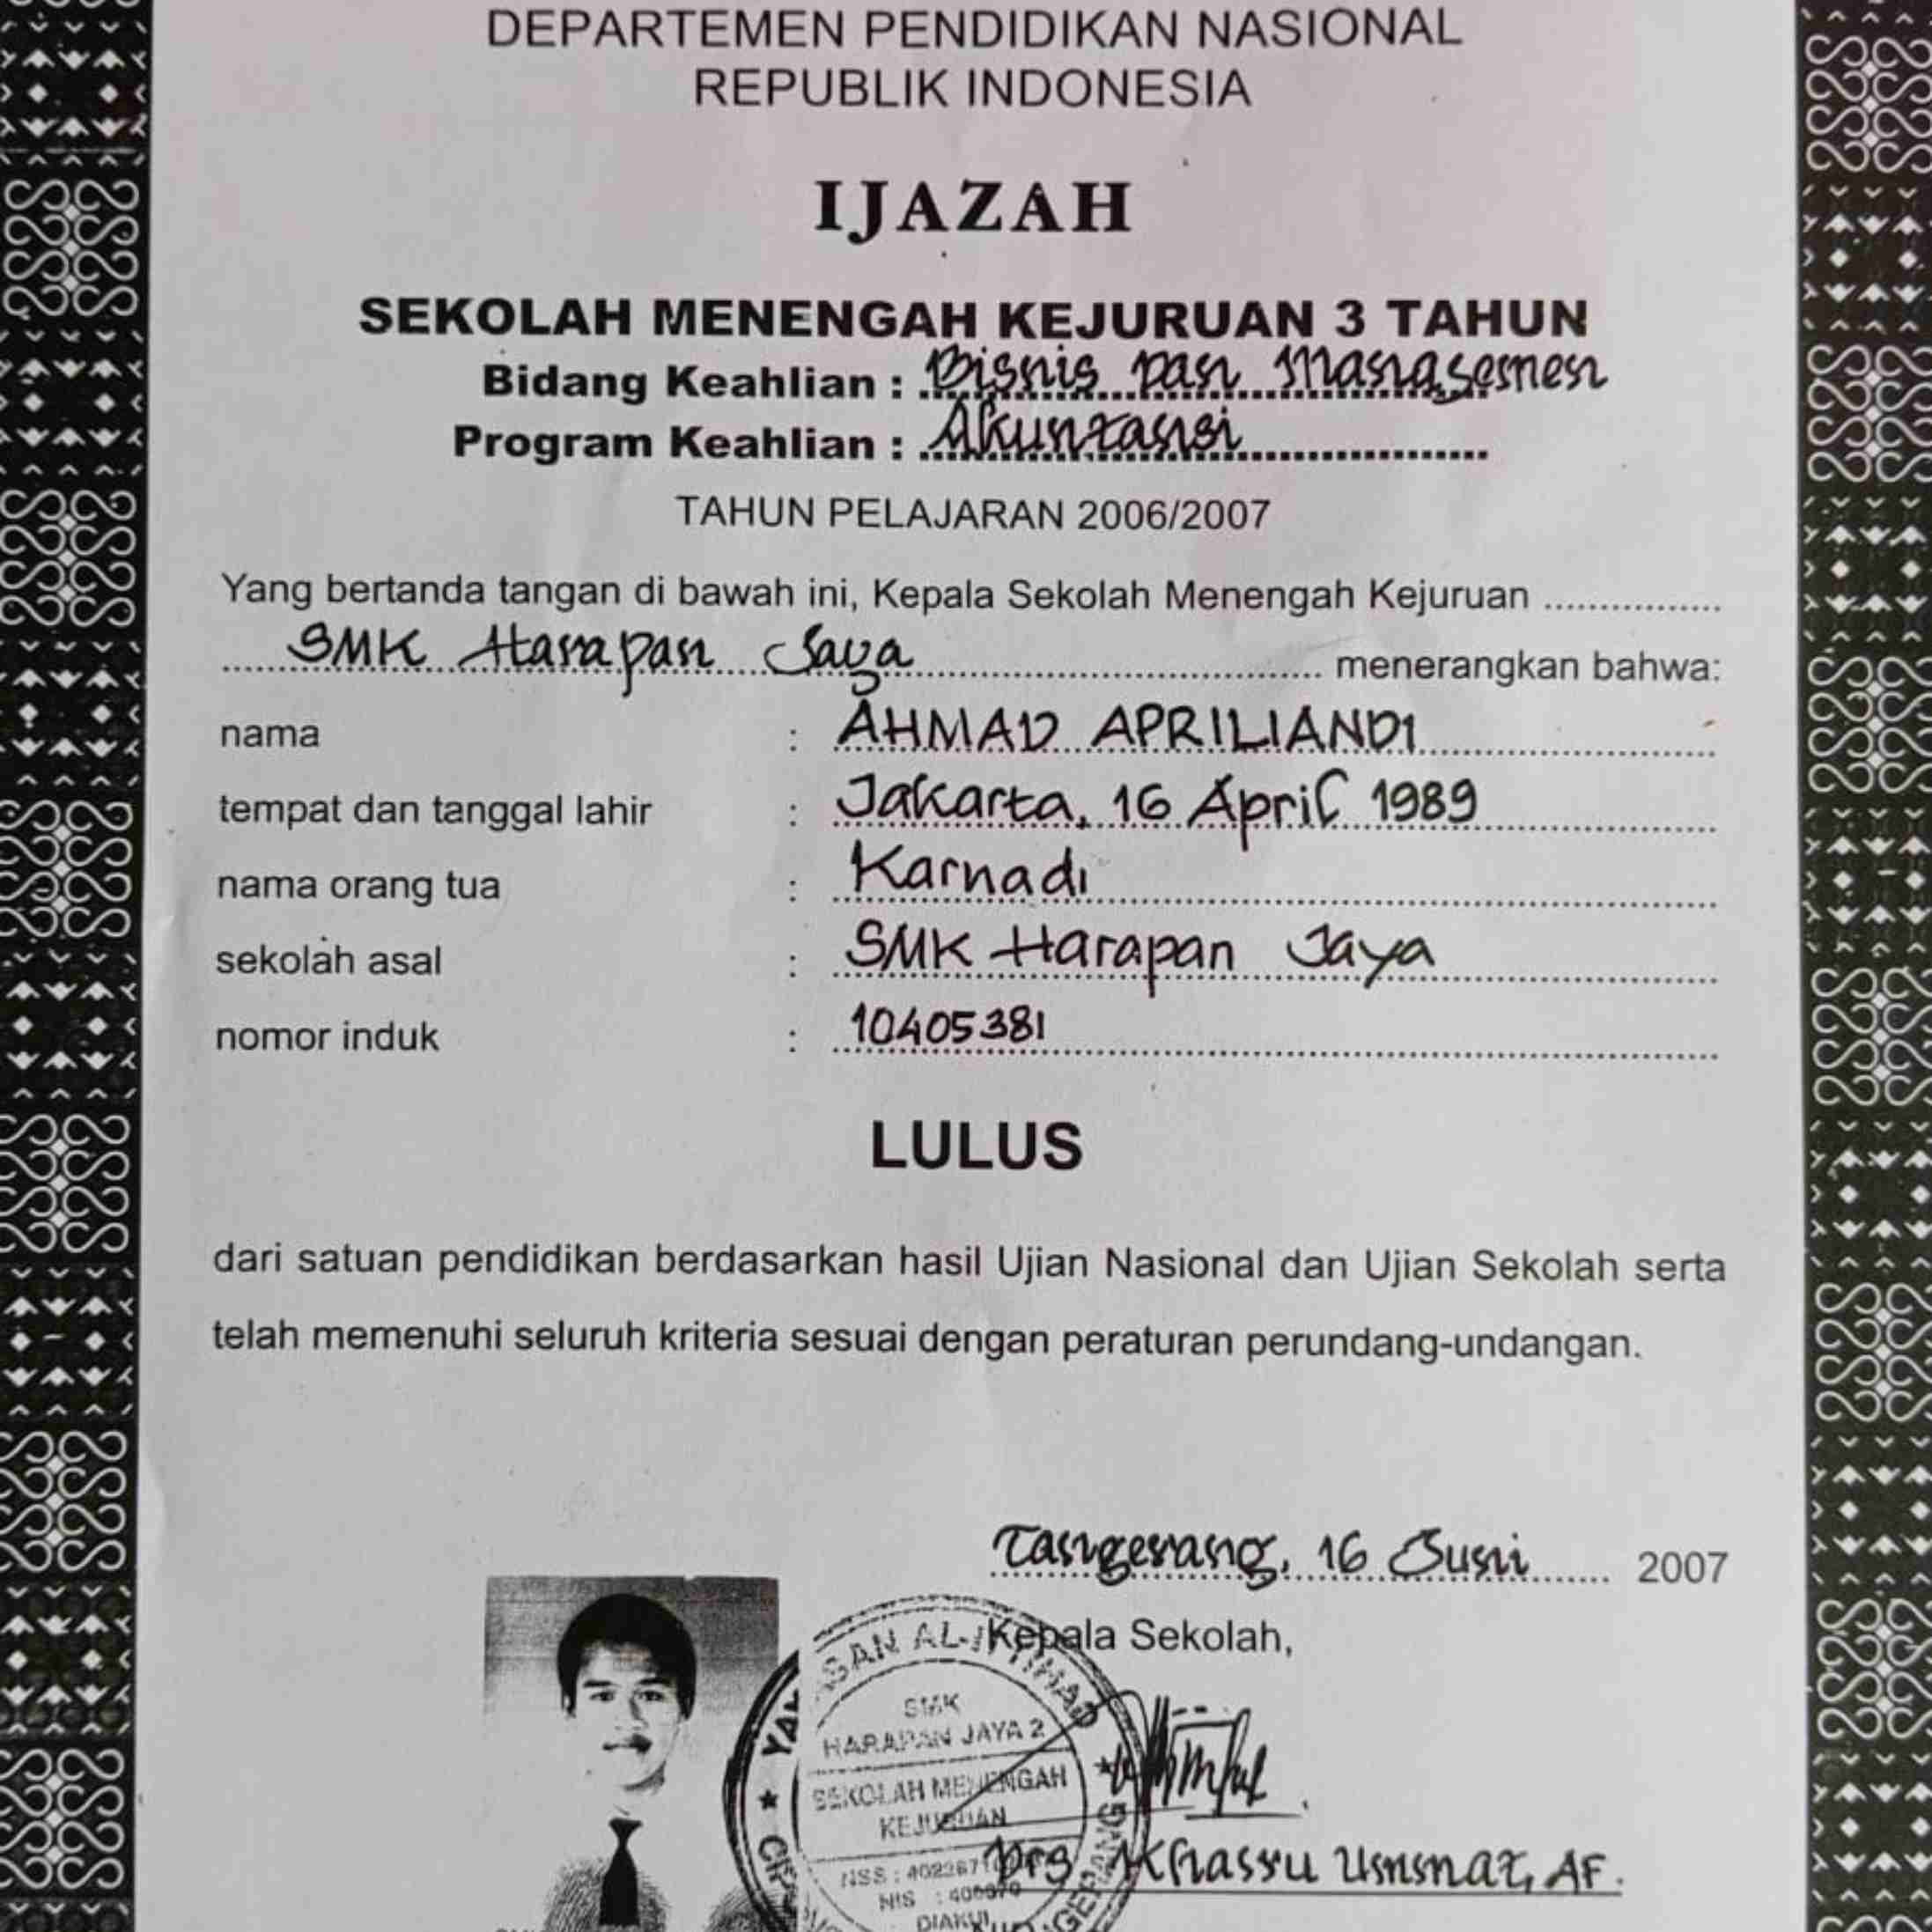 DEPARTEMEN PENDIDIKAN NASIONAL
REPUBLIK INDONESIA
IJAZAH
SEKOLAH MENENGAH KEJURUAN 3 TAHUN
Bidang Keahlian : Bisnis Dan Manajemen
Program Keahlian : Akuntansi
TAHUN PELAJARAN 2006/2007
Yang bertanda tangan di bawah ini, Kepala Sekolah Menengah Kejuruan
SMK Harapan Jaya menerangkan bahwa:
nama : AHMAD APRILIANDI
tempat dan tanggal lahir : Jakarta, 16 April 1989
nama orang tua : Karnadi
sekolah asal : SMK Harapan Jaya
nomor induk : 10405381
LULUS
dari satuan pendidikan berdasarkan hasil Ujian Nasional dan Ujian Sekolah serta
telah memenuhi seluruh kriteria sesuai dengan peraturan perundang-undangan.
Tangerang, 16 Juni 2007
Kepala Sekolah,
SMK
HARAPAN JAYA 2
SEKOLAH MENENGAH
KEJURUAN
NSS :
NIS :
DIAKUI
Drs AF.